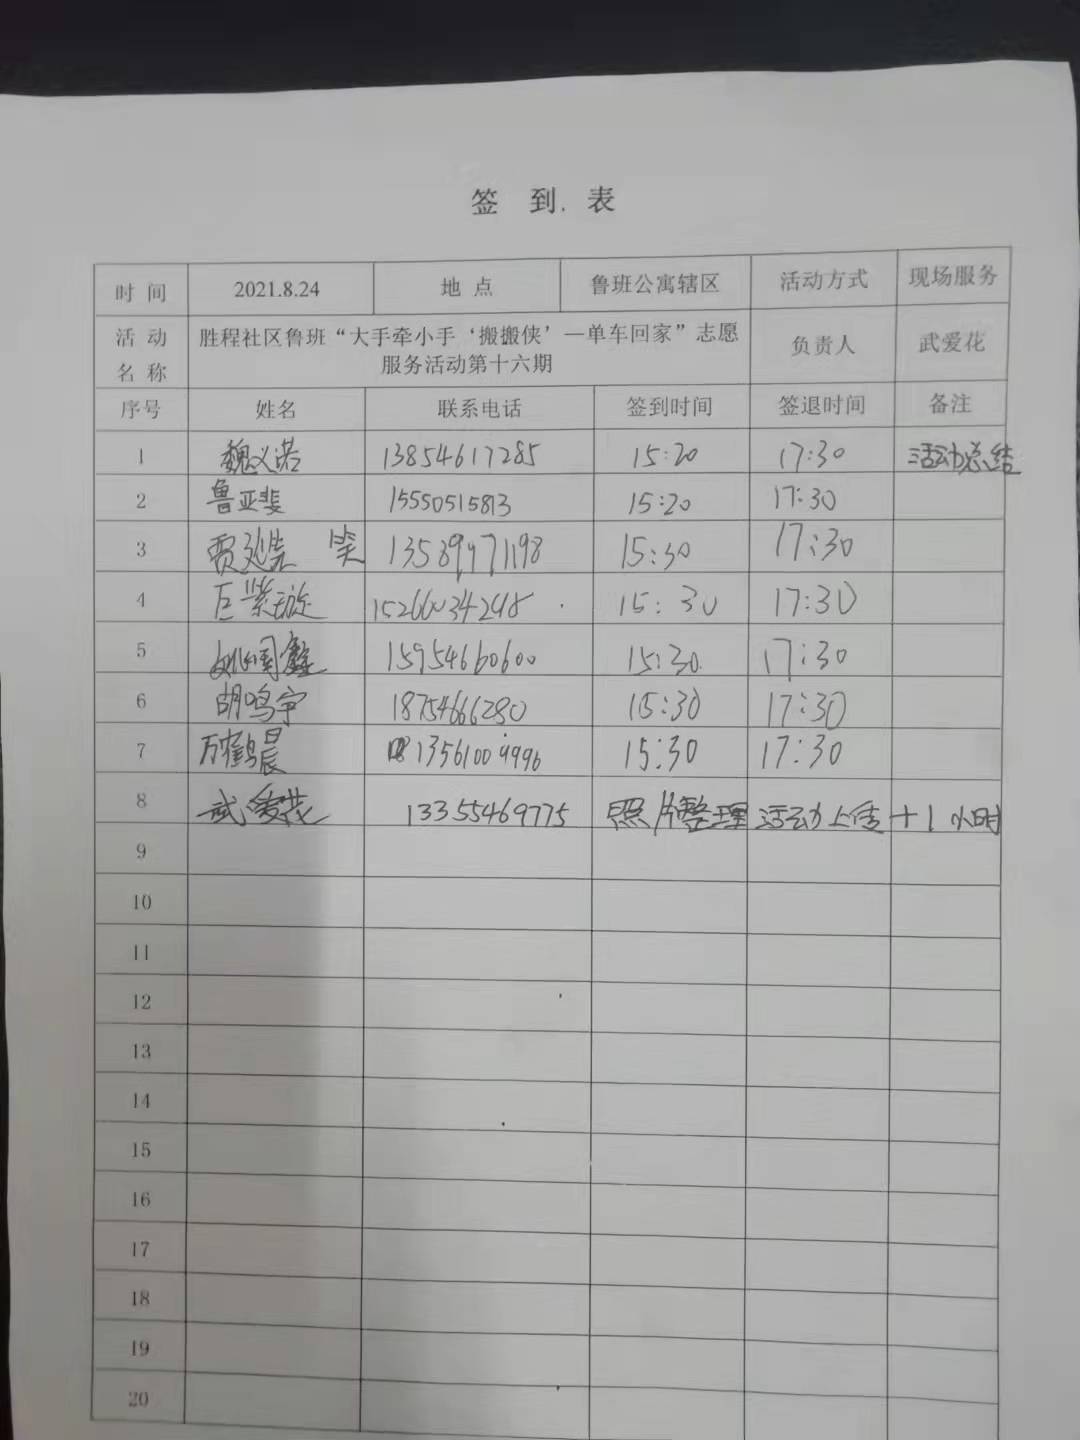 签 到 表
时 间 2021.8.24 地 点 鲁班公寓辖区 活动方式 现场服务
活 动 名 称 胜程社区鲁班“大手牵小手‘搬搬侠’—单车回家”志愿
服务活动第十六期 负责人 武爱花
序号 姓名 联系电话 签到时间 签退时间 备注
1 魏义诺 13854617285 15:20 17:30 活动总结
2 鲁亚斐 15550515813 15:20 17:30
3 贾延 15:30 17:30
4 巨紫璇 15:30 17:30
5 姚国鑫 15954660600 15:30 17:30
6 胡鸣宇 18754666280 15:30 17:30
7 万鹤晨 13561009996 15:30 17:30
8 武爱花 13355469775 照片整理 活动上传 +1小时
9
10
11
12
13
14
15
16
17
18
19
20